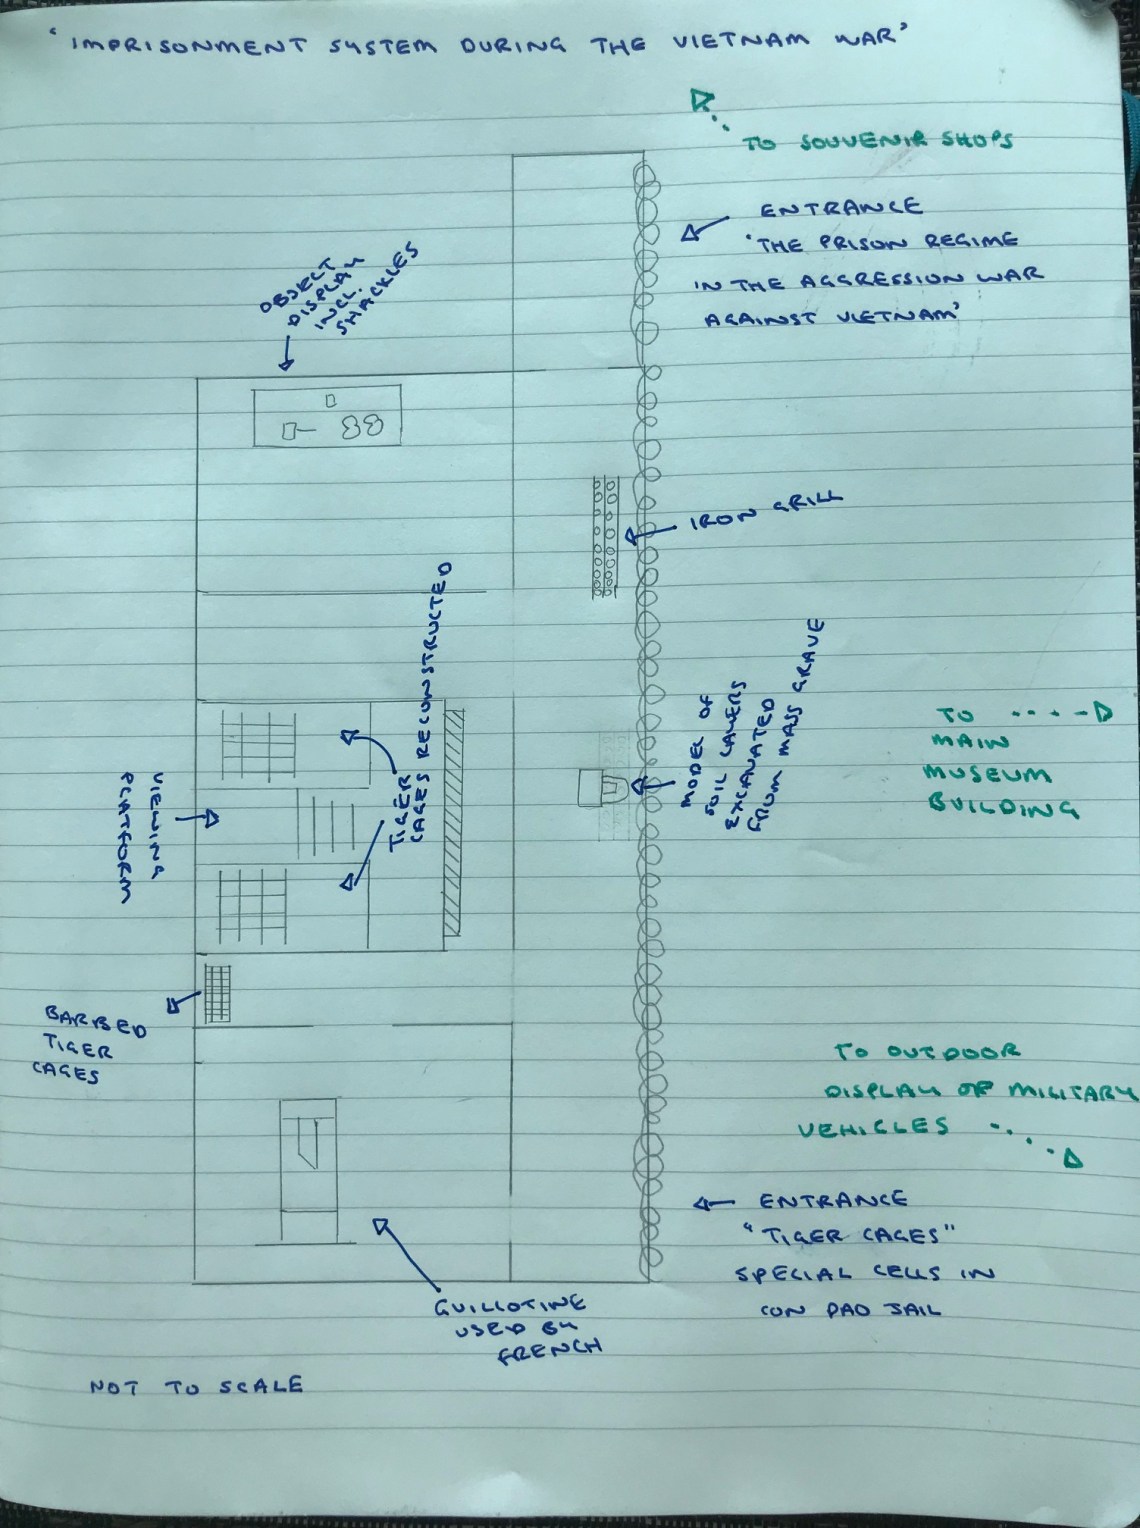 'IMPRISONMENT SYSTEM DURING THE VIETNAM WAR'
TO SOUVENIR SHOPS
ENTRANCE
'THE PRISON REGIME
IN THE AGGRESSION WAR
AGAINST VIETNAM'
OBJECT
DISPLAY
INCL.
SHACKLES
IRON GRILL
TIGER
CAGES RECONSTRUCTED
MODEL OF
SOIL LAYERS
EXCAVATED
FROM MASS GRAVE
TO
MAIN
MUSEUM
BUILDING
VIEWING
PLATFORM
BARBED
TIGER
CAGES
TO OUTDOOR
DISPLAY OF MILITARY
VEHICLES
ENTRANCE
"TIGER CAGES"
SPECIAL CELLS IN
CON DAO JAIL
GUILLOTINE
USED BY
FRENCH
NOT TO SCALE